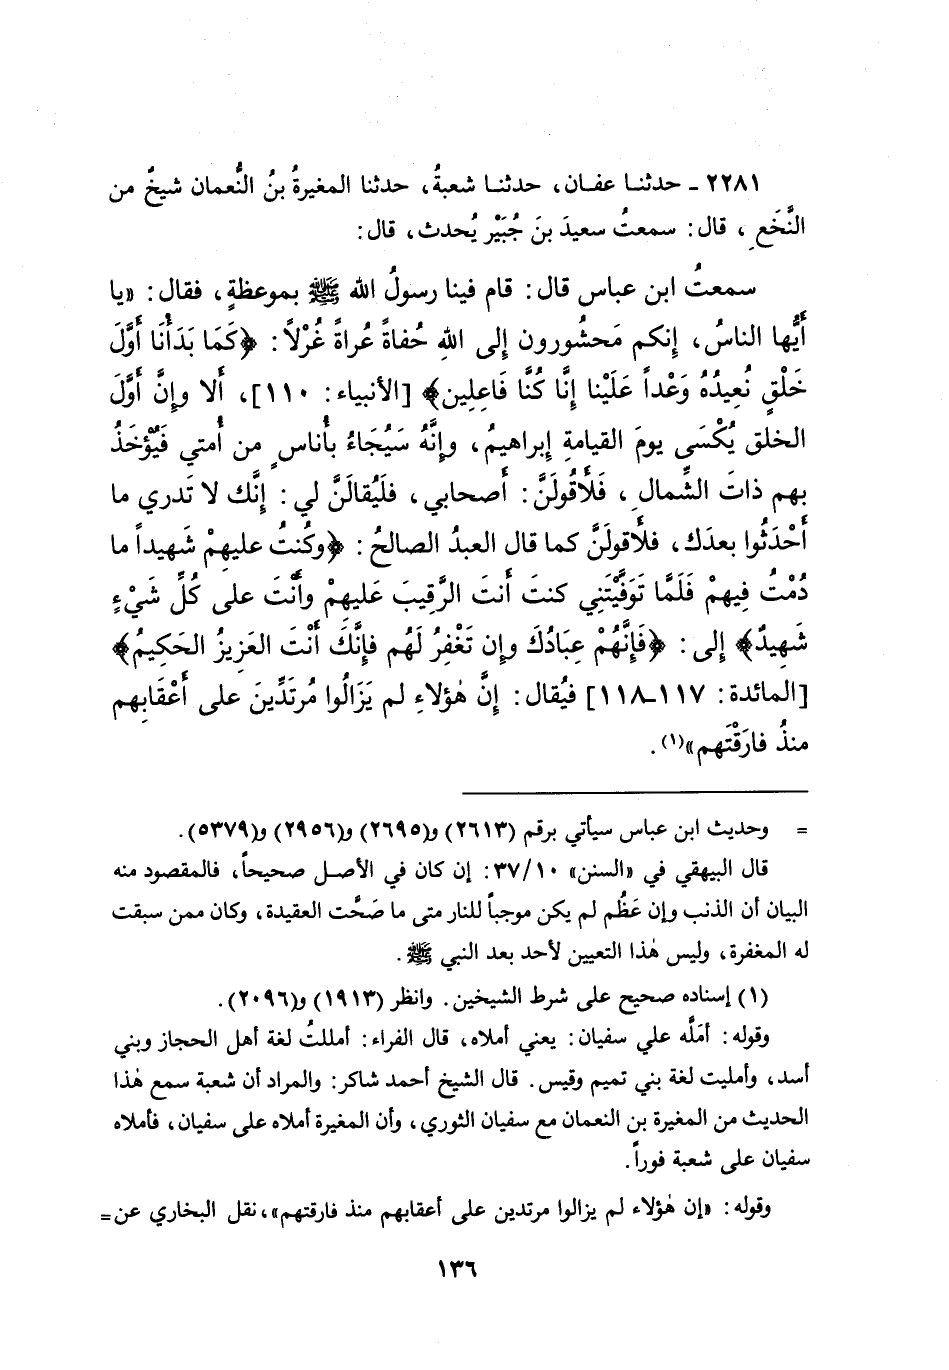 ٢٢٨١ ـ حدثنـا عفـان، حدثنـا شعبةُ، حدثنا المغيرةُ بنُ النُّعمان شيخٌ من
النَّخَعِ، قال: سمعتُ سعيدَ بنَ جُبَيْر يُحدث، قال:
سمعتُ ابن عباس قال: قام فينا رسولُ الله ﷺ بموعظةٍ، فقال: «يا
أَيُّها الناسُ، إنكم مَحشُورون إلى اللهِ حُفاةً عُراةً غُرْلاً: ﴿كَمَا بَدَأْنَا أَوَّلَ
خَلْقٍ نُعِيدُهُ وَعْداً عَلَيْنا إنَّا كُنَّا فَاعِلِين﴾ [الأنبياء: ١١٠]، أَلا وإنَّ أَوَّلَ
الخلق يُكْسَى يومَ القيامةِ إبراهيمُ، وإنَّهُ سَيُجَاءُ بأُناسٍ من أُمتي فَيُؤْخَذُ
بهم ذاتَ الشِّمالِ، فَلَأَقُولَنَّ: أَصحابي، فلَيُقالَنَّ لي: إنَّك لا تَدري ما
أَحْدَثُوا بعدَك، فلَأَقولَنَّ كما قال العبدُ الصالحُ: ﴿وكُنتُ عليهِمْ شَهيداً ما
دُمْتُ فِيهِمْ فَلَمَّا تَوَفَّيْتَنِي كنتَ أَنتَ الرَّقِيبَ عَليهِمْ وأَنْتَ على كُلِّ شَيْءٍ
شَهِيدٌ﴾ إلى: ﴿فَإِنَّهُمْ عِبَادُكَ وإن تَغْفِرُ لَهُم فإنَّكَ أَنْتَ العَزيزُ الحَكِيمُ﴾
[المائدة: ١١٧ـ١١٨] فيُقال: إنَّ هٰؤلاءِ لم يَزَالُوا مُرتَدِّينَ على أَعْقَابِهم
منذُ فارَقْتَهم»(١).
= وحديث ابن عباس سيأتي برقم (٢٦١٣) و(٢٦٩٥) و(٢٩٥٦) و(٥٣٧٩).
قال البيهقي في «السنن» ٣٧/١٠: إن كان في الأصل صحيحاً، فالمقصود منه
البيان أن الذنب وإن عَظُم لم يكن موجباً للنار متى ما صَحَّت العقيدة، وكان ممن سبقت
له المغفرة، وليس هٰذا التعيين لأحد بعد النبي ﷺ.
(١) إسناده صحيح على شرط الشيخين. وانظر (١٩١٣) و(٢٠٩٦).
وقوله: أمَلَّه علي سفيان: يعني أملاه، قال الفراء: أمللتُ لغة أهل الحجاز وبني
أسد، وأمليت لغة بني تميم وقيس. قال الشيخ أحمد شاكر: والمراد أن شعبة سمع هٰذا
الحديث من المغيرة بن النعمان مع سفيان الثوري، وأن المغيرة أملاه على سفيان، فأملاه
سفيان على شعبة فوراً.
وقوله: «إن هٰؤلاء لم يزالوا مرتدين على أعقابهم منذ فارقتهم»، نقل البخاري عن=
١٣٦